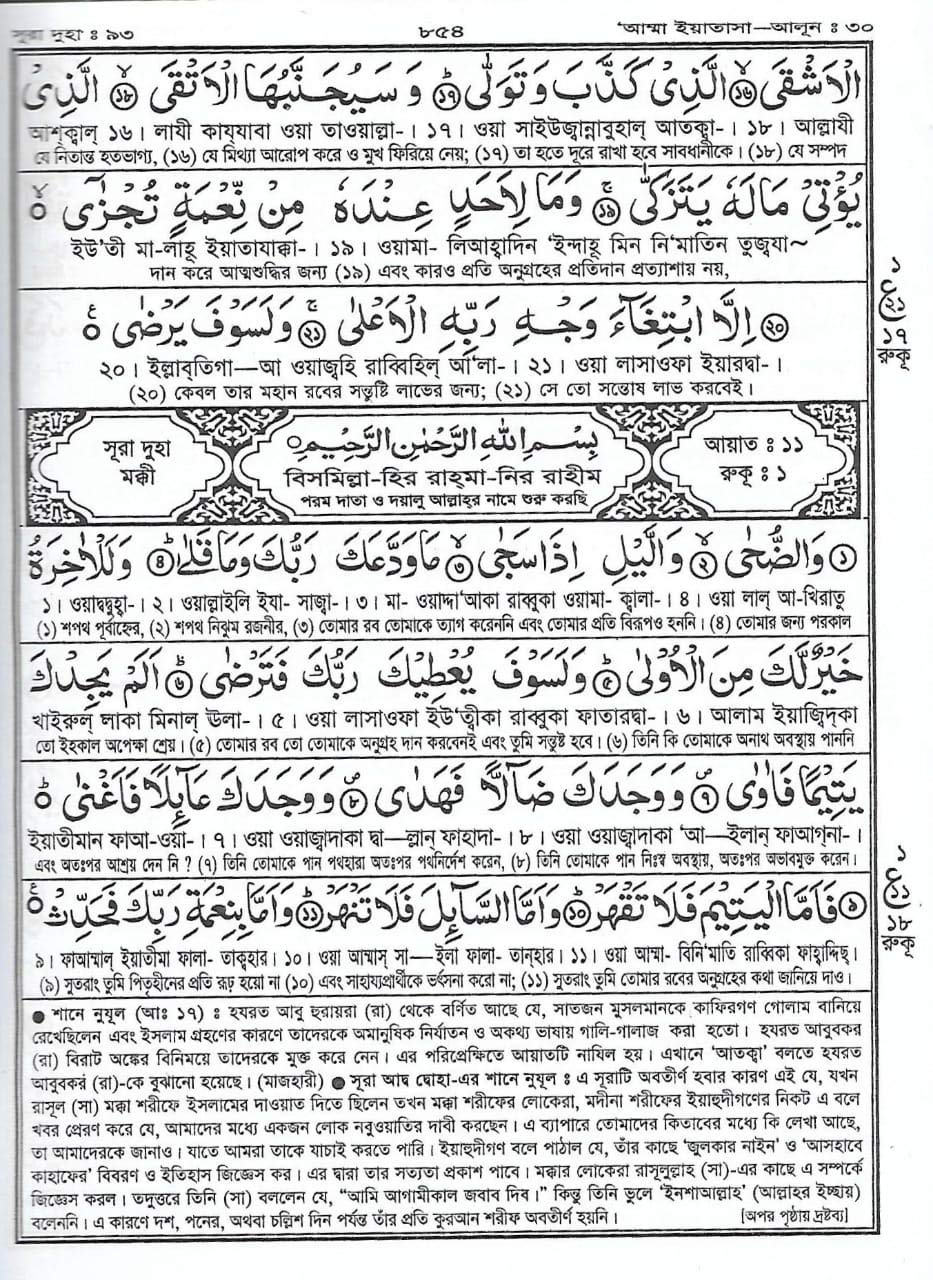 সূরা দুহা : ৯৩
৮৫৪
'আম্মা ইয়াতাসা—আলূন : ৩০
الْاَشْقَى ۝١٦ الَّذِىْ كَذَّبَ وَتَوَلّٰى ۝١٧ وَسَيُجَنَّبُهَا الْاَتْقَى ۝١٨ الَّذِىْ
আশ্ক্বাল্ ১৬। লাযী কায্‌যাবা ওয়া তাওয়াল্লা-। ১৭। ওয়া সাইউজ্বান্নাবুহাল্ আতক্বা-। ১৮। আল্লাযী
যে নিতান্ত হতভাগ্য, (১৬) যে মিথ্যা আরোপ করে ও মুখ ফিরিয়ে নেয়; (১৭) তা হতে দূরে রাখা হবে সাবধানীকে। (১৮) যে সম্পদ
يُؤْتِىْ مَالَهٗ يَتَزَكّٰى ۝١٩ وَمَا لِاَحَدٍ عِنْدَهٗ مِنْ نِّعْمَةٍ تُجْزٰٓى
ইউ'তী মা-লাহূ ইয়াতাযাক্কা-। ১৯। ওয়ামা- লিআহাদিন 'ইন্দাহূ মিন নি'মাতিন তুজ্‌যা~
দান করে আত্মশুদ্ধির জন্য (১৯) এবং কারও প্রতি অনুগ্রহের প্রতিদান প্রত্যাশায় নয়,
۝٢٠ اِلَّا ابْتِغَآءَ وَجْهِ رَبِّهِ الْاَعْلٰى ۝٢١ وَلَسَوْفَ يَرْضٰى
২০। ইল্লাব্‌তিগা—আ ওয়াজ্বহি রাব্বিহিল্ আ'লা-। ২১। ওয়া লাসাওফা ইয়ারদ্বা-।
(২০) কেবল তার মহান রবের সন্তুষ্টি লাভের জন্য; (২১) সে তো সন্তোষ লাভ করবেই।
১
ع
২১
১৭
রুকূ
সূরা দুহা
মক্কী
بِسْمِ اللّٰهِ الرَّحْمٰنِ الرَّحِيْمِ
বিসমিল্লা-হির রাহ্‌মা-নির রাহীম
পরম দাতা ও দয়ালু আল্লাহ্‌র নামে শুরু করছি
আয়াত : ১১
রুকূ : ১
۝١ وَالضُّحٰى ۝٢ وَالَّيْلِ اِذَا سَجٰى ۝٣ مَا وَدَّعَكَ رَبُّكَ وَمَا قَلٰى ۝٤ وَلَلْاٰخِرَةُ
১। ওয়াদ্বদ্বুহা-। ২। ওয়াল্লাইলি ইযা- সাজ্বা-। ৩। মা- ওয়াদ্দা'আকা রাব্বুকা ওয়ামা- ক্বালা-। ৪। ওয়া লাল্ আ-খিরাতু
(১) শপথ পূর্বাহ্নের, (২) শপথ নিঝুম রজনীর, (৩) তোমার রব তোমাকে ত্যাগ করেননি এবং তোমার প্রতি বিরূপও হননি। (৪) তোমার জন্য পরকাল
خَيْرٌ لَّكَ مِنَ الْاُوْلٰى ۝٥ وَلَسَوْفَ يُعْطِيْكَ رَبُّكَ فَتَرْضٰى ۝٦ اَلَمْ يَجِدْكَ
খাইরুল্ লাকা মিনাল্ ঊলা-। ৫। ওয়া লাসাওফা ইউ'ত্বীকা রাব্বুকা ফাতারদ্বা-। ৬। আলাম ইয়াজ্বিদ্‌কা
তো ইহকাল অপেক্ষা শ্রেয়। (৫) তোমার রব তো তোমাকে অনুগ্রহ দান করবেনই এবং তুমি সন্তুষ্ট হবে। (৬) তিনি কি তোমাকে অনাথ অবস্থায় পাননি
يَتِيْمًا فَاٰوٰى ۝٧ وَوَجَدَكَ ضَآلًّا فَهَدٰى ۝٨ وَوَجَدَكَ عَآئِلًا فَاَغْنٰى
ইয়াতীমান ফাআ-ওয়া-। ৭। ওয়া ওয়াজ্বাদাকা দ্বা—ল্লান্ ফাহাদা-। ৮। ওয়া ওয়াজ্বাদাকা 'আ—ইলান্ ফাআগ্‌না-।
এবং অতঃপর আশ্রয় দেন নি ? (৭) তিনি তোমাকে পান পথহারা অতঃপর পথনির্দেশ করেন, (৮) তিনি তোমাকে পান নিঃস্ব অবস্থায়, অতঃপর অভাবমুক্ত করেন।
۝٩ فَاَمَّا الْيَتِيْمَ فَلَا تَقْهَرْ ۝١٠ وَاَمَّا السَّآئِلَ فَلَا تَنْهَرْ ۝١١ وَاَمَّا بِنِعْمَةِ رَبِّكَ فَحَدِّثْ
৯। ফাআম্মাল্ ইয়াতীমা ফালা- তাক্ব্‌হার। ১০। ওয়া আম্মাস্ সা—ইলা ফালা- তান্‌হার। ১১। ওয়া আম্মা- বিনি'মাতি রাব্বিকা ফাহাদ্দিছ্।
(৯) সুতরাং তুমি পিতৃহীনের প্রতি রূঢ় হয়ো না (১০) এবং সাহায্যপ্রার্থীকে ভর্ৎসনা করো না; (১১) সুতরাং তুমি তোমার রবের অনুগ্রহের কথা জানিয়ে দাও।
১
ع
১১
১৮
রুকূ
● শানে নুযূল (আঃ ১৭) : হযরত আবু হুরায়রা (রা) থেকে বর্ণিত আছে যে, সাতজন মুসলমানকে কাফিরগণ গোলাম বানিয়ে
রেখেছিলেন এবং ইসলাম গ্রহণের কারণে তাদেরকে অমানুষিক নির্যাতন ও অকথ্য ভাষায় গালি-গালাজ করা হতো। হযরত আবুবকর
(রা) বিরাট অঙ্কের বিনিময়ে তাদেরকে মুক্ত করে নেন। এর পরিপ্রেক্ষিতে আয়াতটি নাযিল হয়। এখানে 'আতক্বা' বলতে হযরত
আবুবকর (রা)-কে বুঝানো হয়েছে। (মাজহারী) ● সূরা আদ্ব দ্বোহা-এর শানে নুযূল : এ সূরাটি অবতীর্ণ হবার কারণ এই যে, যখন
রাসূল (সা) মক্কা শরীফে ইসলামের দাওয়াত দিতে ছিলেন তখন মক্কা শরীফের লোকেরা, মদীনা শরীফের ইয়াহুদীগণের নিকট এ বলে
খবর প্রেরণ করে যে, আমাদের মধ্যে একজন লোক নবুওয়াতির দাবী করছেন। এ ব্যাপারে তোমাদের কিতাবের মধ্যে কি লেখা আছে,
তা আমাদেরকে জানাও। যাতে আমরা তাকে যাচাই করতে পারি। ইয়াহুদীগণ বলে পাঠাল যে, তাঁর কাছে 'জুলকার নাইন' ও 'আসহাবে
কাহাফের' বিবরণ ও ইতিহাস জিজ্ঞেস কর। এর দ্বারা তার সত্যতা প্রকাশ পাবে। মক্কার লোকেরা রাসূলুল্লাহ (সা)-এর কাছে এ সম্পর্কে
জিজ্ঞেস করল। তদুত্তরে তিনি (সা) বললেন যে, "আমি আগামীকাল জবাব দিব।" কিন্তু তিনি ভুলে 'ইনশাআল্লাহ' (আল্লাহর ইচ্ছায়)
বলেননি। এ কারণে দশ, পনের, অথবা চল্লিশ দিন পর্যন্ত তাঁর প্রতি কুরআন শরীফ অবতীর্ণ হয়নি।
[অপর পৃষ্ঠায় দ্রষ্টব্য]